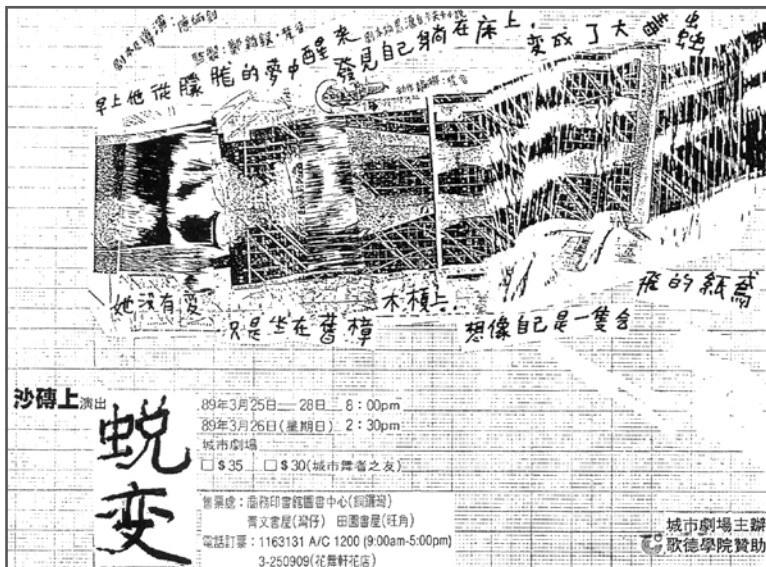 劇本及導演：陳炳釗
早上他從朦朧的夢中醒來
發見自己躺在床上，
變成了大
她沒有愛
只是坐在舊樟
木槓上...
想像自己是一隻會
飛的紙鳶
沙磚上演出
蛻变
89年3月25日—28日 8：00pm
89年3月26日(星期日) 2：30pm
城市劇場
□ $35 □ $30(城市舞者之友)
售票處：商務印書館圖書中心(銅鑼灣)
青文書屋(灣仔) 田園書屋(旺角)
電話訂票：1163131 A/C 1200 (9:00am-5:00pm)
3-250909(花舞軒花店)
城市劇場主辦
歌德學院贊助